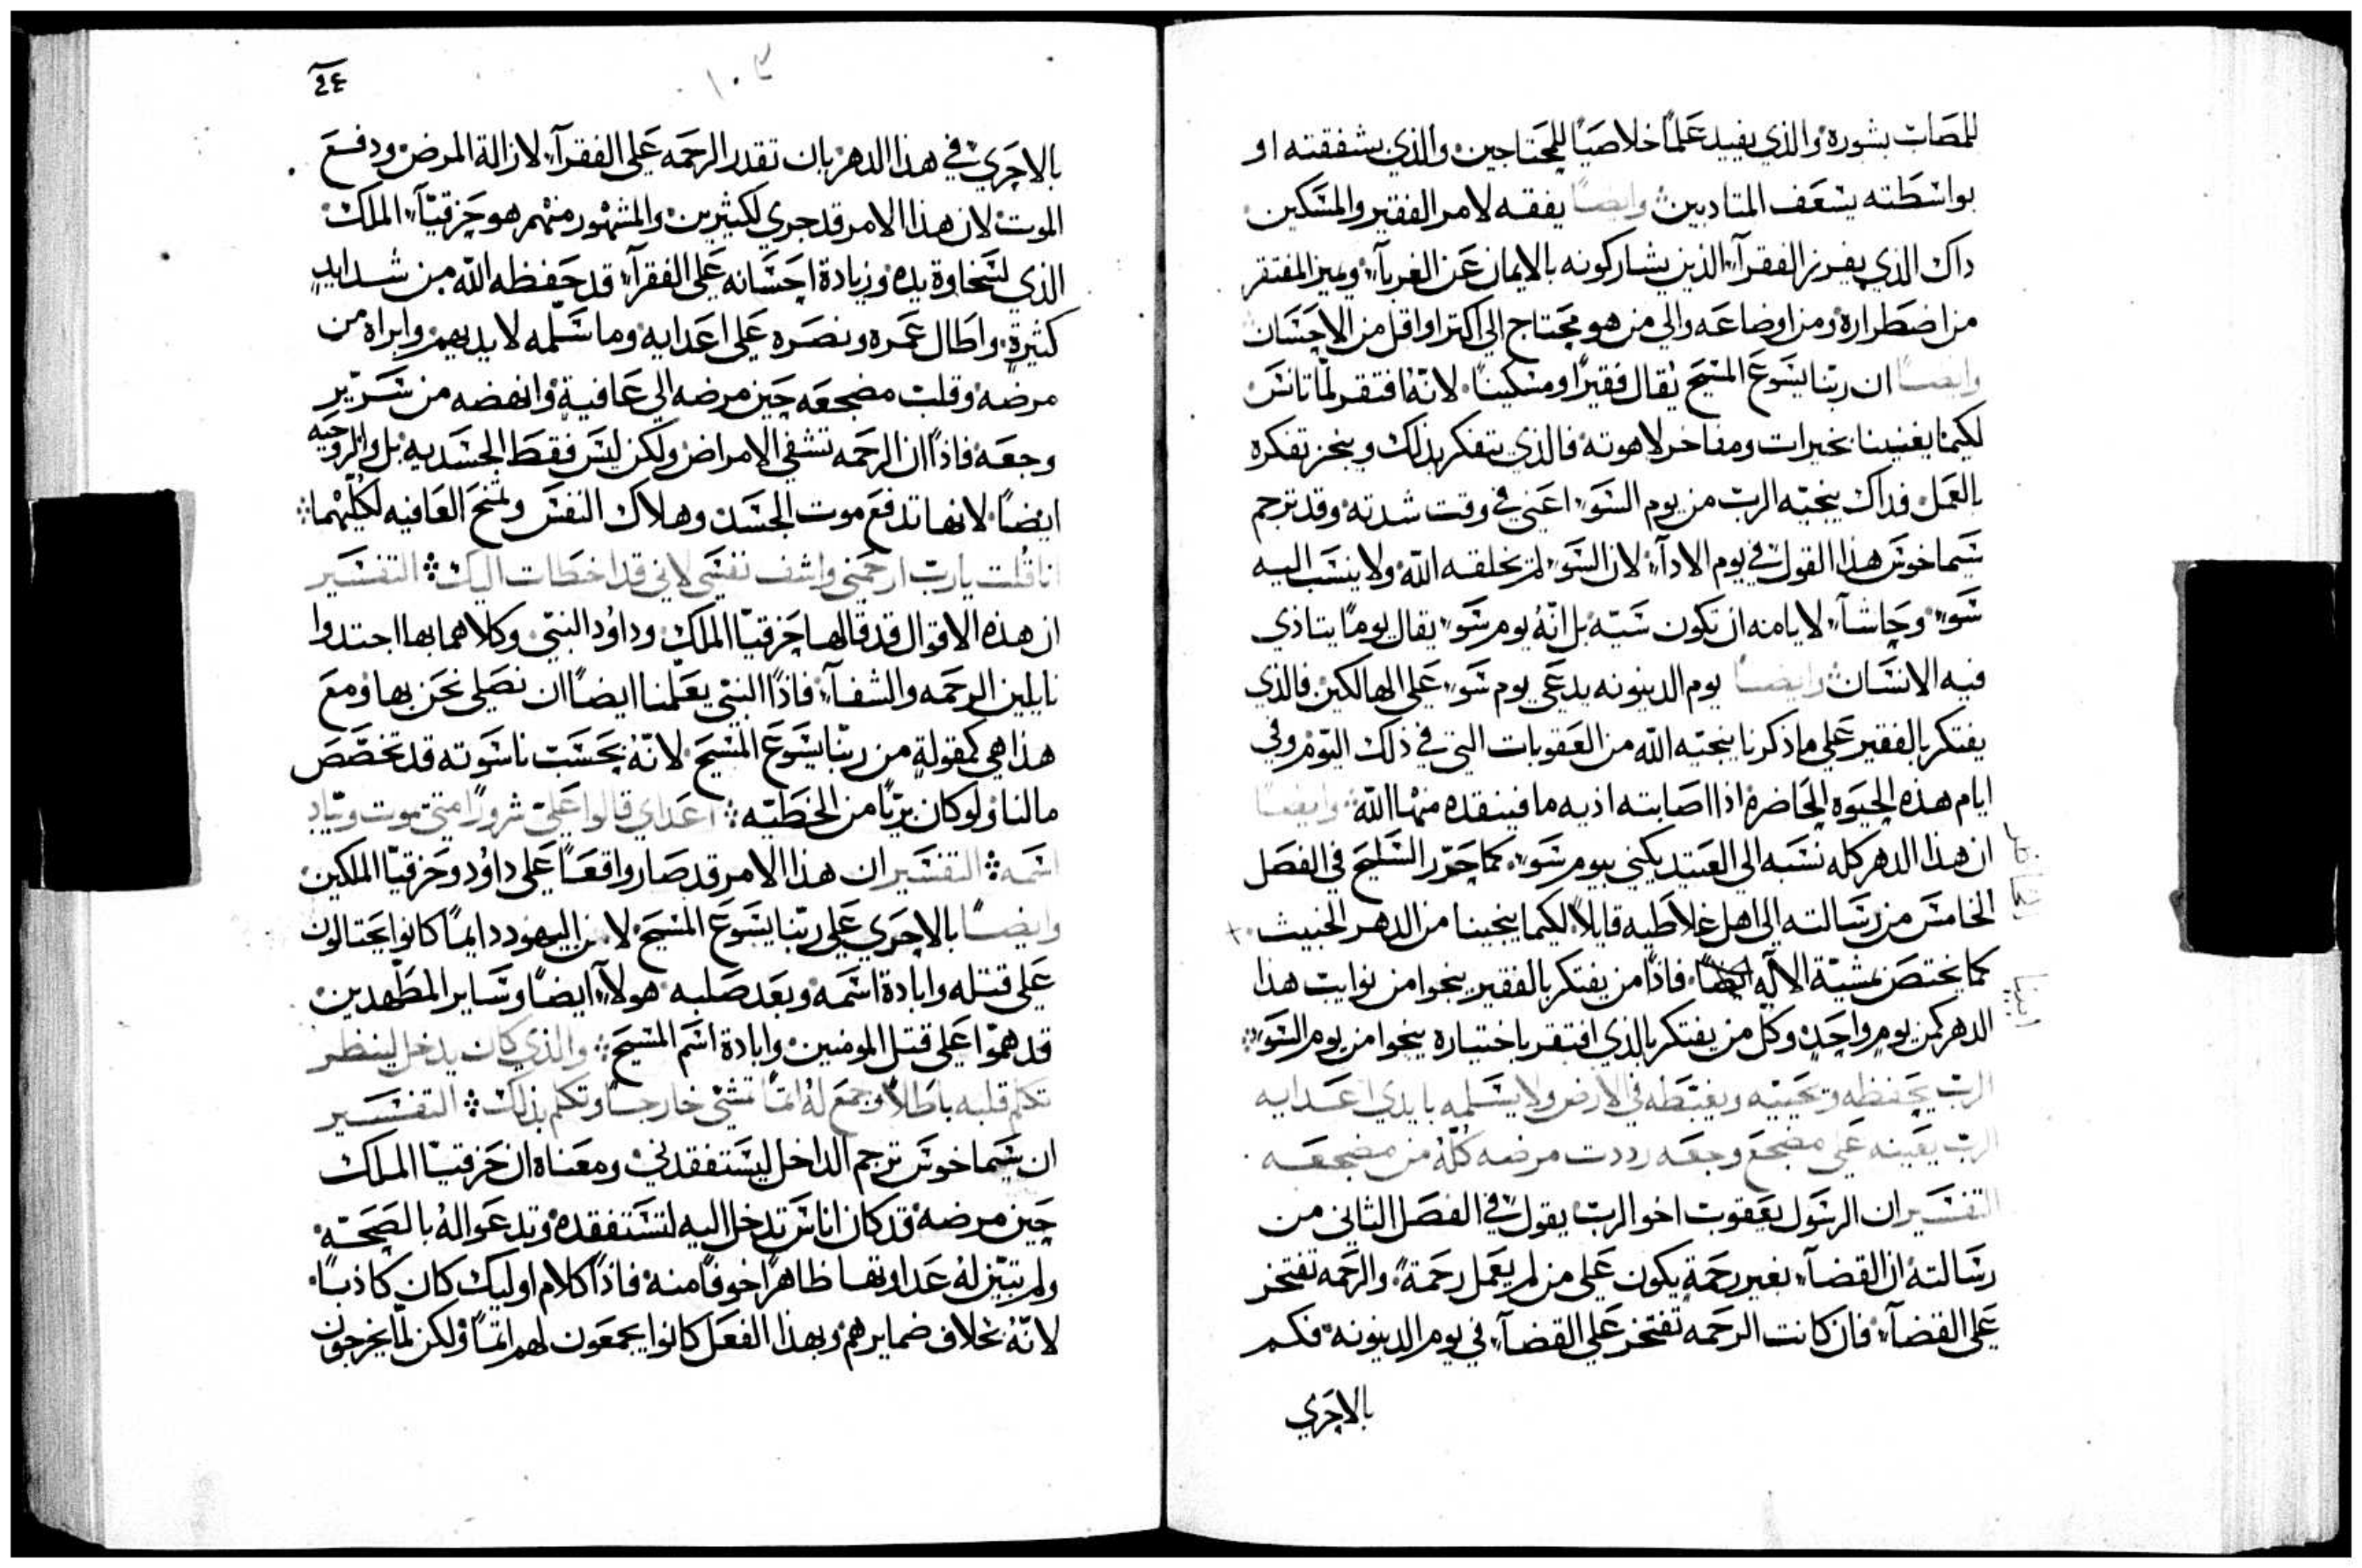 للمصاب بشورة والذي يفيد علمًا خلاصيًا للمحتاجين والذي بشفقته او
بواسطته يسعف المتادبين وايضًا يفقه لامر الفقير والمسكين
داك الذي يفرز الفقرآء الذين يشاركونه بالايمان عن الغربآء ويميز المفتقر
من اضطراره ومن اوضاعه والي من هو محتاج الي اكتر او اقل من الاحسان
وايضًا ان ربنا يسوع المسيح يقال فقيرًا ومسكينًا لانهُ افتقر لمّا تانس
لكيما يغنينا بخيرات ومفاخر لاهوته فالذي يتفكر بذلك وينجز تفكره
بالعمل فداك ينجيه الرب من يوم السوء اعني في وقت شدته وقد ترجم
سيماخوس هذا القول في يوم الادآء لان السوء لم يخلقه الله ولا ينسب اليه
سوء وحاشآء لايامنه ان تكون سيّه بل انّهُ يوم سوء يقال يومًا يتاذي
فيه الانسان وايضًا يوم الدينونه يدعي يوم سوء علي الهالكين فالذي
يفتكر بالفقير علي ما ذكرنا ينجيه الله من العقوبات التي في ذلك اليوم وفي
ايام هذه الحيوه الحاضرة اذا اصابته اذيه ما فينقذه منها الله وايضًا
ان هذا الدهر كله نسبه الي العتيد يكني بيوم سوء كما حرّر السليح في الفصل
الخامس من رسالته الي اهل غلاطيه قايلاً لكيما ينجينا من الدهر الخبيث
كما يختص بمشيّة الاله فاذًا من يفتكر بالفقير ينجوا من نوايت هذا
الدهر كمن يوم واحد وكل من يفتكر بالذي افتقر باختياره ينجوا من يوم السوء
الرب يحفظه ويحييه ويغبّطه في الارض ولا يسلمه بايدي اعدايه
الرب يعينه علي مضجع وجعه رددت مرضه كلّهُ من مضجعه
التفسير ان الرسول يعقوب اخو الرب يقول في الفصل الثاني من
رسالته ان القضآء بغير رحمة يكون علي من لم يعمل رحمةً والرحمه تفتخر
علي القضآء فان كانت الرحمه تفتخر علي القضآء في يوم الدينونه فكم
بالاحري
٤٤
١٠٣
بالاحري في هذا الدهر بان تقدر الرحمه علي الفقرآء لازالة المرض ودفع
الموت لان هذا الامر قد جري لكثيرين والمشهور منهم هو حزقيّآء الملك
الذي لسخاوة يده وزيادة احسانه علي الفقرآء قد حفظه الله من شدايد
كثيرة واطال عمره ونصره علي اعدايه وما سلّمه لايديهم وابراه من
مرضه وقلب مضجعه حين مرضه الي عافية وانهضه من سرير
وجعه فاذًا ان الرحمه تشفي الامراض ولكن ليس فقط الجسديه بل والروحيه
ايضًا لانها تدفع موت الجسد وهلاك النفس وتمنح العافيه لكليهما
انا قلت يارب ارحمني واشف نفسي لاني قد اخطات اليك التفسير
ان هذه الاقوال قد قالها حزقيّا الملك وداوُد النبي وكلاهما بها اجتدوا
نايلين الرحمه والشفآء فاذًا النبي يعلّمنا ايضًا ان نصلي نحن بها ومع
هذا هي كمقولة من ربنا يسوع المسيح لانهُ بحسب ناسوته قد تخصّص
مالنا ولو كان بريًا من الخطيّه اعداي قالوا عليّ شرورًا متي يموت ويباد
اسمه التفسير ان هذا الامر قد صار واقعًا علي داوُد وحزقيّا الملكين
وايضًا بالاحري علي ربنا يسوع المسيح لان اليهود دايمًا كانوا يحتالون
علي قتله وابادة اسمه وبعد صلبه هولآء ايضًا وساير المطّهدين
قد همّوا علي قتل المومنين وابادة اسم المسيح والذي كان يدخل لينظر
تكلّم قلبه باطلاً وجمع لهُ اثمًا تمشّي خارجًا وتكلم بذلك التفسير
ان سيماخوس ترجم الداخل ليستفقدني ومعناه ان حزقيّا الملك
حين مرضه قد كان اناس تدخل اليه لتستفقده وتدعوا لهُ بالصحّه
ولم تبيّن لهُ عداوتها ظاهرًا خوفًا منه فاذًا كلام اوليك كان كاذبًا
لانّهُ بخلاف ضمايرهم وبهذا الفعل كانوا يجمعون لهم اثمًا ولكن لمّا يخرجون